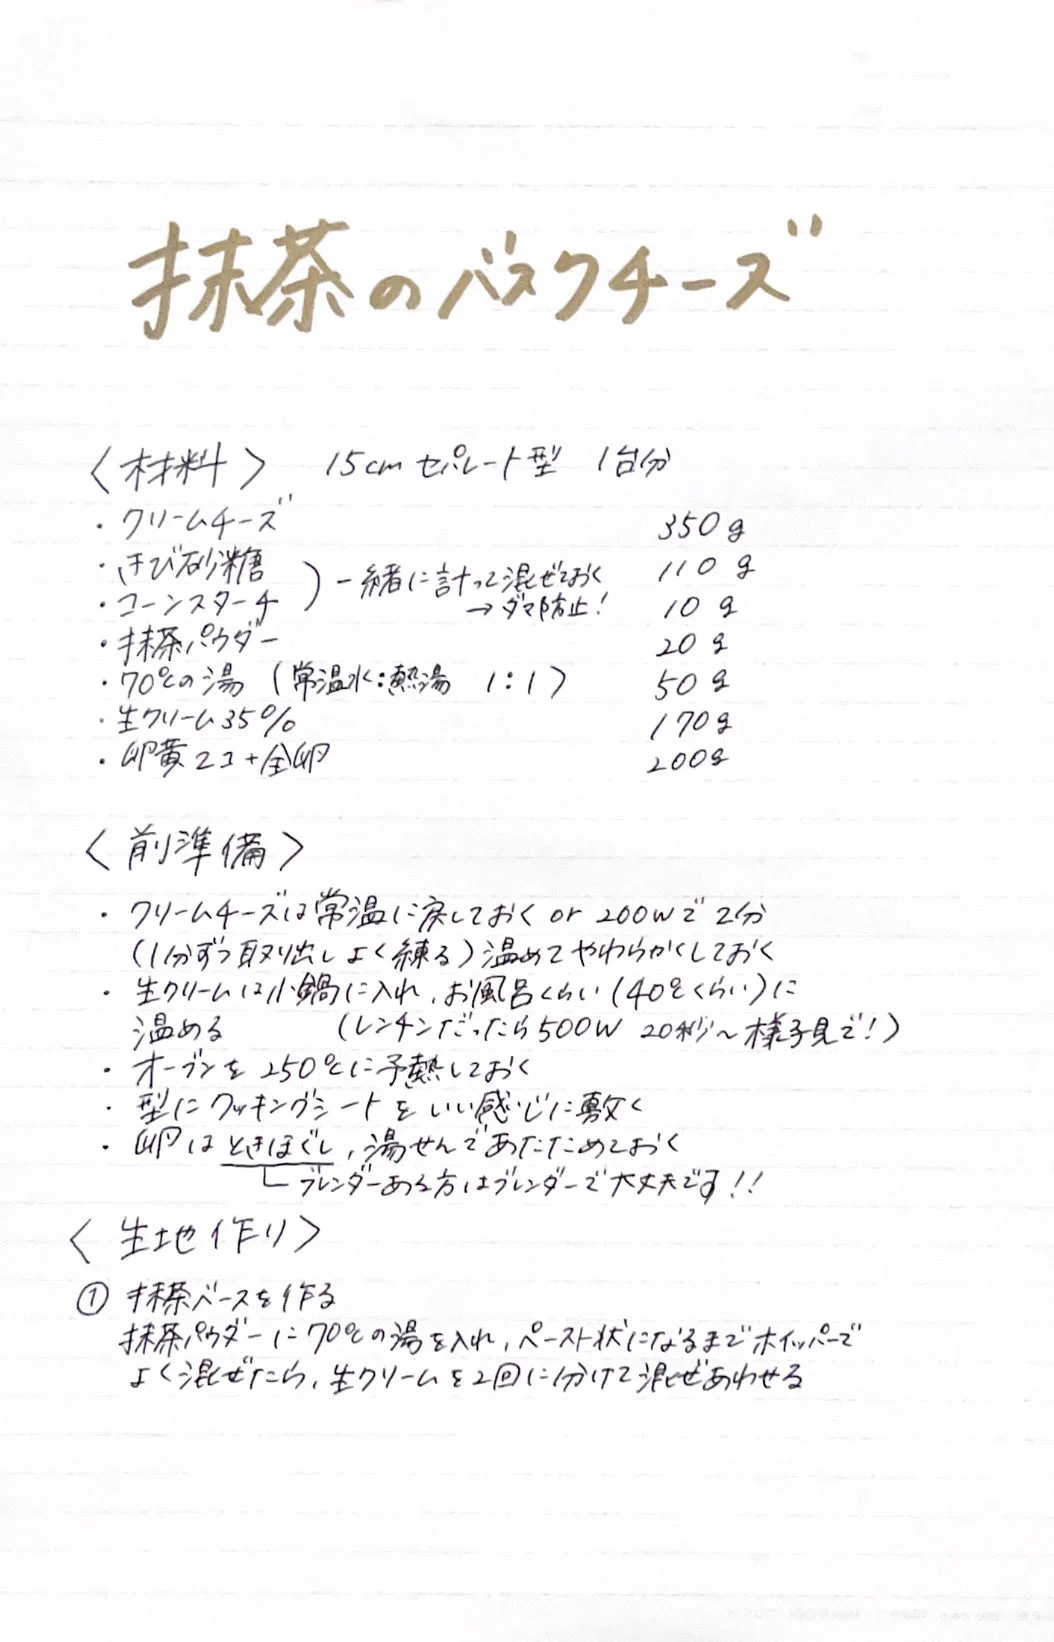 抹茶のバスクチーズ
〈材料〉 15cmセパレート型 1台分
・クリームチーズ 350g
・きび砂糖 110g
・コーンスターチ 10g
）一緒に計って混ぜておく
→ダマ防止！
・抹茶パウダー 20g
・70℃の湯 (常温水:熱湯 1:1) 50g
・生クリーム35% 170g
・卵黄2コ+全卵 200g
〈前準備〉
・クリームチーズは常温に戻しておく or 200Wで2分
(1分ずつ取り出しよく練る)温めてやわらかくしておく
・生クリームは小鍋に入れ、お風呂くらい(40℃くらい)に
温める (レンチンだったら500W 20秒〜様子見で!)
・オーブンを250℃に予熱しておく
・型にクッキングシートをいい感じに敷く
・卵はときほぐし、湯せんであたためておく
ブレンダーある方はブレンダーで大丈夫です!!
〈生地作り〉
① 抹茶ベースを作る
抹茶パウダーに70℃の湯を入れ、ペースト状になるまでホイッパーで
よく混ぜたら、生クリームを2回に分けて混ぜあわせる